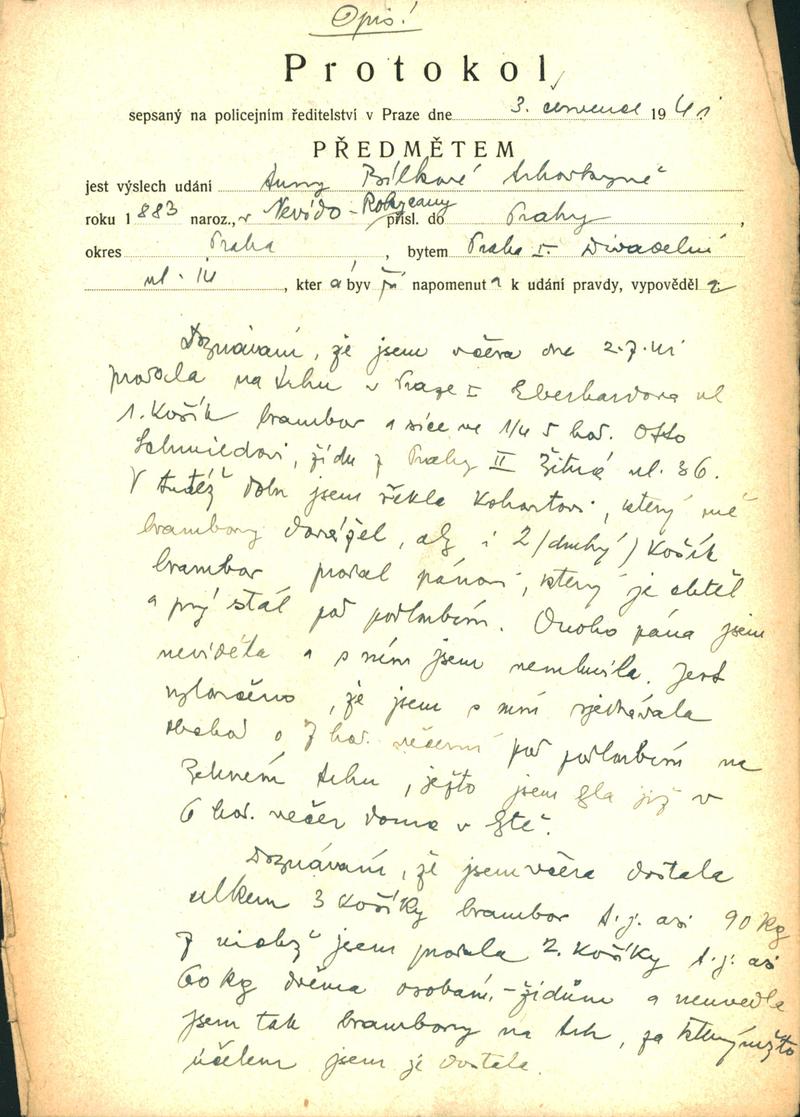 Opis!
Protokol
sepsaný na policejním ředitelství v Praze dne 3. července 1941
PŘEDMĚTEM
jest výslech udání Anny Bílkové trhovkyně
roku 1883 naroz., v Nevido-Rokycany přísl. do Prahy,
okres Praha, bytem Praha I. Divadelní
ul. 14, kterábyvší napomenuta k udání pravdy, vypověděla
Doznávám, že jsem včera dne 2.7.41
prodala na trhu v Praze I Eberhardova ul
1. košík brambor a sice ve 1/4 5 hod. Otto
Schmiedovi, židu z Prahy II Žitná ul. 36.
V tutéž dobu jsem řekla, který mě
brambory dovážel, aby i 2/druhý/ košík
brambor prodal pánovi, který je chtěl
a prý stál pod podloubím. Onoho pána jsem
neviděla a s ním jsem nemluvila. Jest
vyloučeno, že jsem s ním sjednávala
obchod o 7 hod. večerní pod podloubím na
Zelném trhu, ježto jsem byla již v
6 hod. večer doma v bytě.
Doznávám, že jsem včera dostala
celkem 3 košíky brambor t.j. asi 90 kg
z nichž jsem prodala 2. košíky t.j. asi
60 kg dvěma osobám,-židům a neuvedla
jsem tak brambory na trh, za kterýmžto
účelem jsem je dostala.